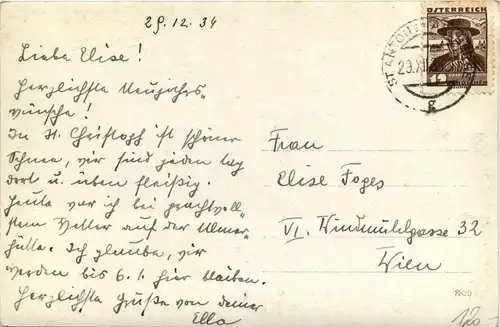 29.12.34
Liebe Elise!
Herzlichste Neujahrs-
wünsche!
In St. Christoph ist schöner
Schnee, wir sind jeden Tag
dort u. üben fleißig.
Heute war ich bei prachtvoll-
stem Wetter auf der Ulmer-
hütte. Ich glaube, wir
werden bis 6.1. hier bleiben.
Herzlichste Grüße von deiner
Ella
ÖSTERREICH
12
ST. ANTON
g
Frau
Elise Foges
VI. Windmühlgasse 32
Wien
120.-